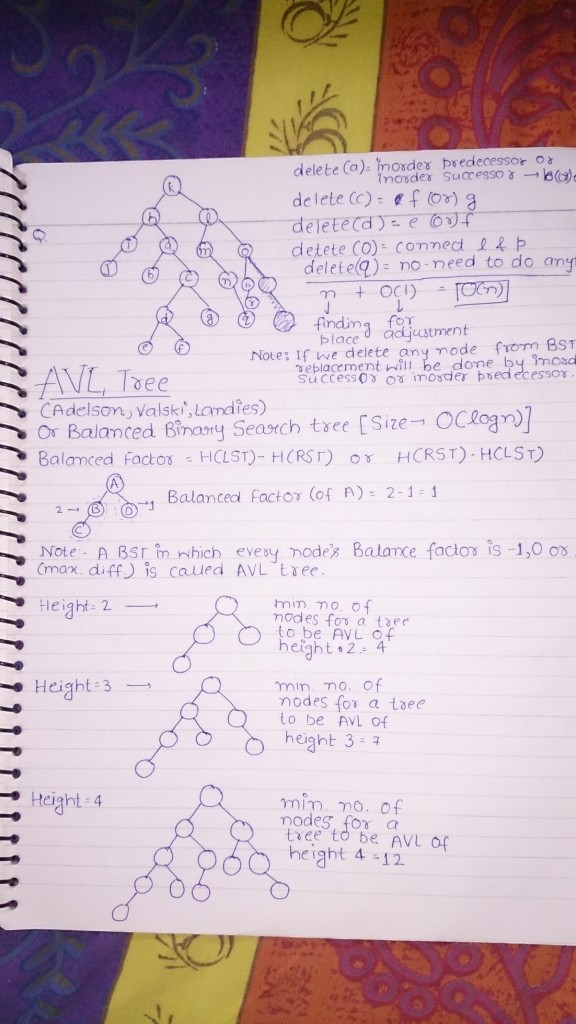 delete(a) = inorder predecessor or
inorder successor →
delete(c) = f (or) g
Q.
delete(d) = e (or) f
delete(o) = connect l & p
delete(q) = no-need to do any
n + O(1) = O(n)
↓ ↓
finding for
place adjustment
Note: If we delete any node from BST
replacement will be done by inord
successor or inorder predecessor.
k
h l
i a m o
j b c n
d g q
e f
AVL Tree
(Adelson, Valski, Landies)
Or Balanced Binary Search tree [Size → O(logn)]
Balanced Factor = H(LST) - H(RST) or H(RST) - H(LST)
A
2 → B D → 1
C
Balanced Factor (of A) = 2-1 = 1
Note:- A BST in which every node's Balance factor is -1,0 or
(max. diff.) is called AVL tree.
Height = 2 → min. no. of
nodes for a tree
to be AVL of
height 2 = 4
Height = 3 → min. no. of
nodes for a tree
to be AVL of
height 3 = 7
Height = 4 min. no. of
nodes for a
tree to be AVL of
height 4 = 12